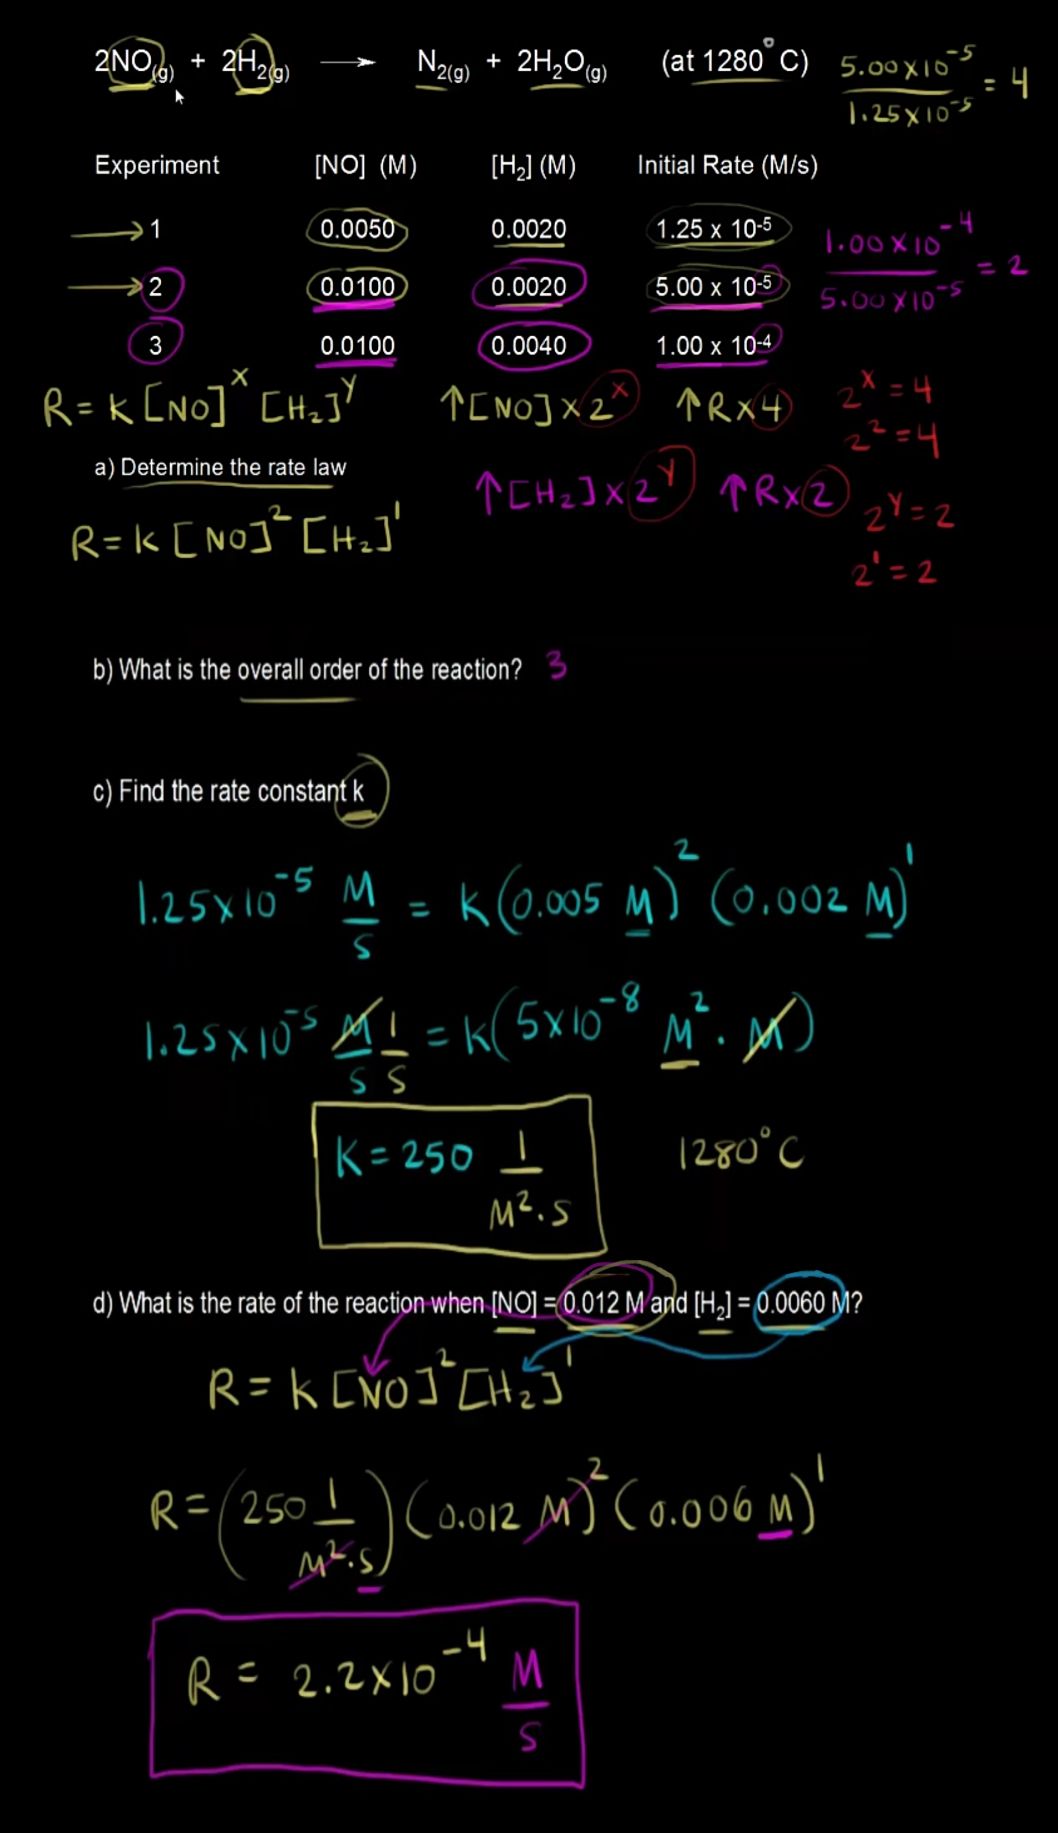 2NO(g) + 2H₂(g) → N₂(g) + 2H₂O(g) (at 1280°C)
5.00x10⁻⁵ / 1.25x10⁻⁵ = 4
Experiment [NO] (M) [H₂] (M) Initial Rate (M/s)
1 0.0050 0.0020 1.25 x 10⁻⁵
1.00x10⁻⁴ / 5.00x10⁻⁵ = 2
2 0.0100 0.0020 5.00 x 10⁻⁵
3 0.0100 0.0040 1.00 x 10⁻⁴
R = K [NO]ˣ [H₂]ʸ ↑[NO] x 2ˣ ↑R x 4 2ˣ = 4
2² = 4
a) Determine the rate law
↑[H₂] x 2ʸ ↑R x 2 2ʸ = 2
R = K [NO]² [H₂]¹
2¹ = 2
b) What is the overall order of the reaction? 3
c) Find the rate constant k
1.25x10⁻⁵ M/S = K(0.005 M)² (0.002 M)¹
1.25x10⁻⁵ M/S 1/S = K(5x10⁻⁸ M² · M)
K = 250 1/M²·S 1280°C
d) What is the rate of the reaction when [NO] = 0.012 M and [H₂] = 0.0060 M?
R = K [NO]² [H₂]¹
R = (250 1/M²·S) (0.012 M)² (0.006 M)¹
R = 2.2x10⁻⁴ M/S